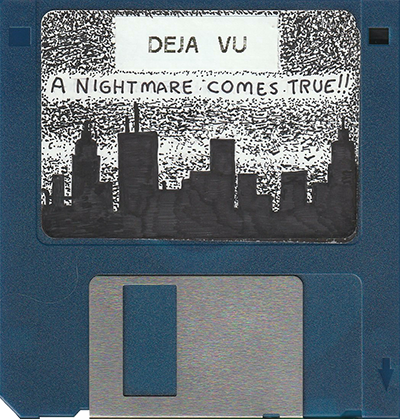 DEJA VU
A NIGHTMARE COMES TRUE!!